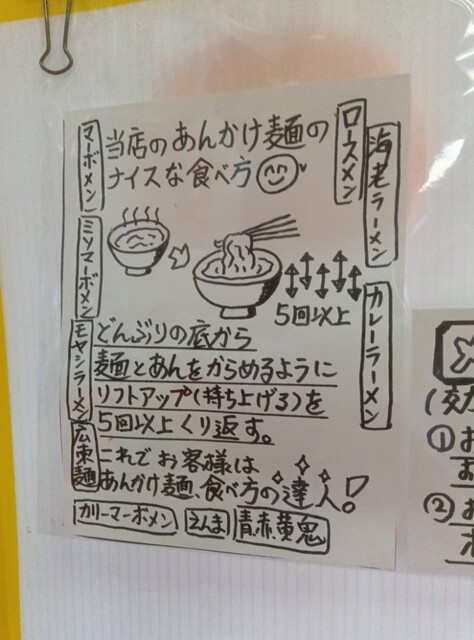 当店のあんかけ麺の
ナイスな食べ方
マーボメン
ミソマーボメン
モヤシラーメン
広東麺
ロースメン
海老ラーメン
カレーラーメン
5回以上
どんぶりの底から
麺とあんをからめるように
リフトアップ(持ち上げる)を
5回以上くり返す。
これでお客様は
あんかけ麺、食べ方の達人!
カリーマーボメン
えんま
青赤黄鬼
(効
① お
② お